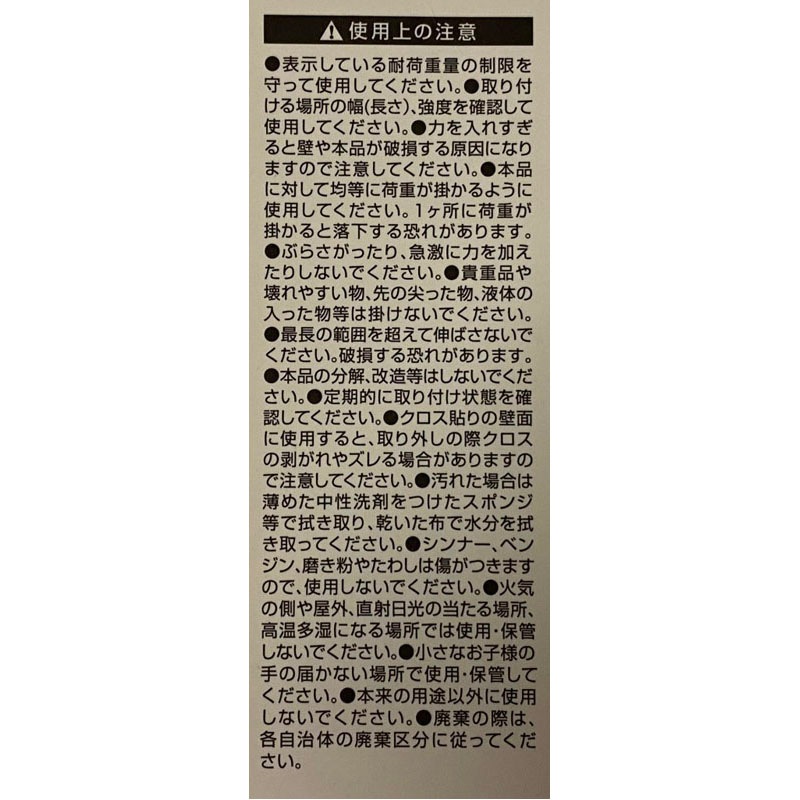 ⚠使用上の注意
●表示している耐荷重量の制限を
守って使用してください。●取り付
ける場所の幅(長さ)、強度を確認して
使用してください。●力を入れすぎ
ると壁や本品が破損する原因になり
ますので注意してください。●本品
に対して均等に荷重が掛かるように
使用してください。1ヶ所に荷重が
掛かると落下する恐れがあります。
●ぶらさがったり、急激に力を加え
たりしないでください。●貴重品や
壊れやすい物、先の尖った物、液体の
入った物等は掛けないでください。
●最長の範囲を超えて伸ばさないで
ください。破損する恐れがあります。
●本品の分解、改造等はしないでくだ
さい。●定期的に取り付け状態を確
認してください。●クロス貼りの壁面
に使用すると、取り外しの際クロス
の剥がれやズレる場合がありますの
で注意してください。●汚れた場合は
薄めた中性洗剤をつけたスポンジ
等で拭き取り、乾いた布で水分を拭
き取ってください。●シンナー、ベン
ジン、磨き粉やたわしは傷がつきます
ので、使用しないでください。●火気
の側や屋外、直射日光の当たる場所、
高温多湿になる場所では使用・保管
しないでください。●小さなお子様の
手の届かない場所で使用・保管して
ください。●本来の用途以外に使用
しないでください。●廃棄の際は、
各自治体の廃棄区分に従ってくだ
さい。